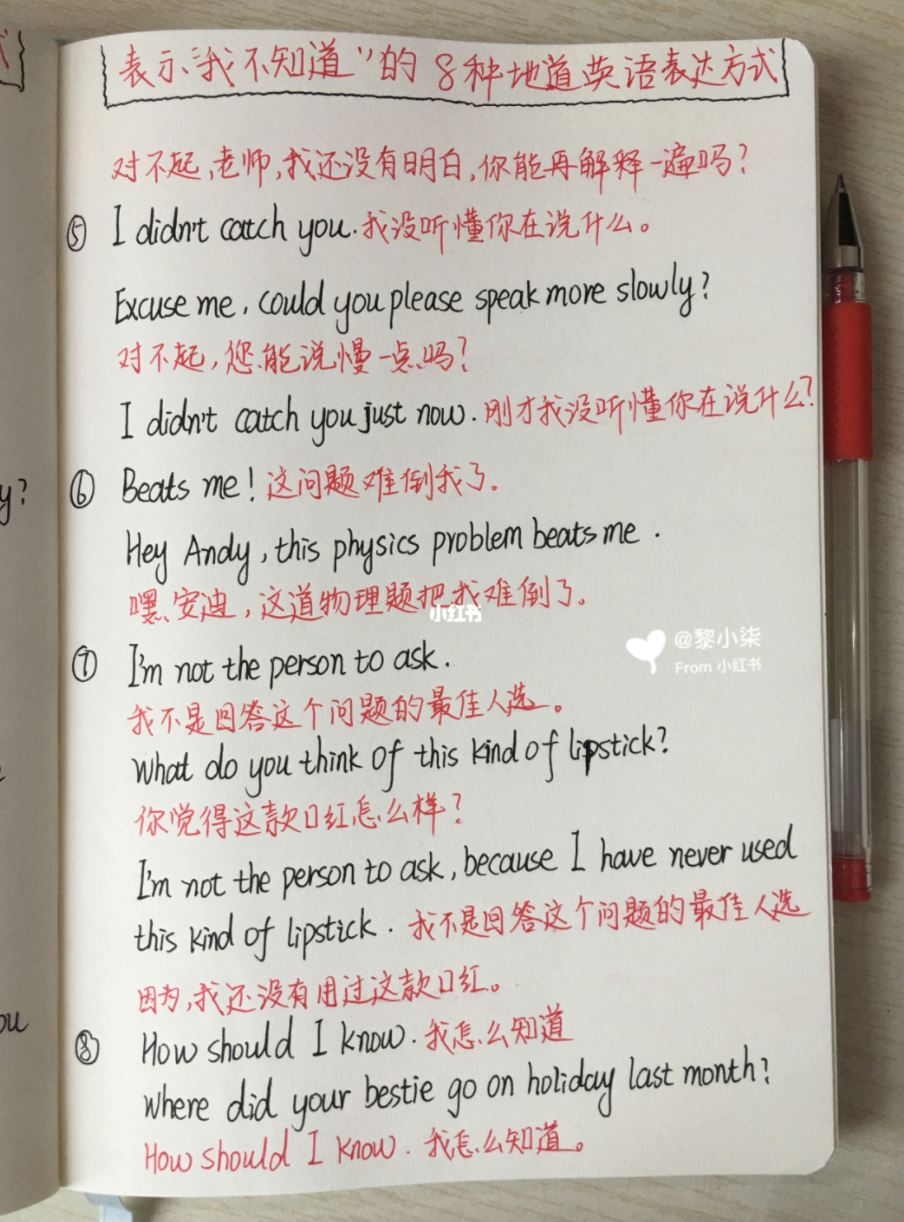 表示"我不知道"的 8种地道英语表达方式
对不起,老师,我还没有明白,你能再解释一遍吗?
⑤ I didn't catch you.我没听懂你在说什么。
Excuse me, could you please speak more slowly?
对不起,您能说慢一点吗?
I didn't catch you just now.刚才我没听懂你在说什么?
⑥ Beats me! 这问题难倒我了。
Hey Andy, this physics problem beats me.
嘿,安迪,这道物理题把我难倒了。
小红书
⑦ I'm not the person to ask.
@黎小柒
From 小红书
我不是回答这个问题的最佳人选。
What do you think of this kind of lipstick?
你觉得这款口红怎么样?
I'm not the person to ask, because I have never used
this kind of lipstick. 我不是回答这个问题的最佳人选
因为,我还没有用过这款口红。
⑧ How should I know. 我怎么知道
Where did your bestie go on holiday last month?
How should I know. 我怎么知道。
y?
ou